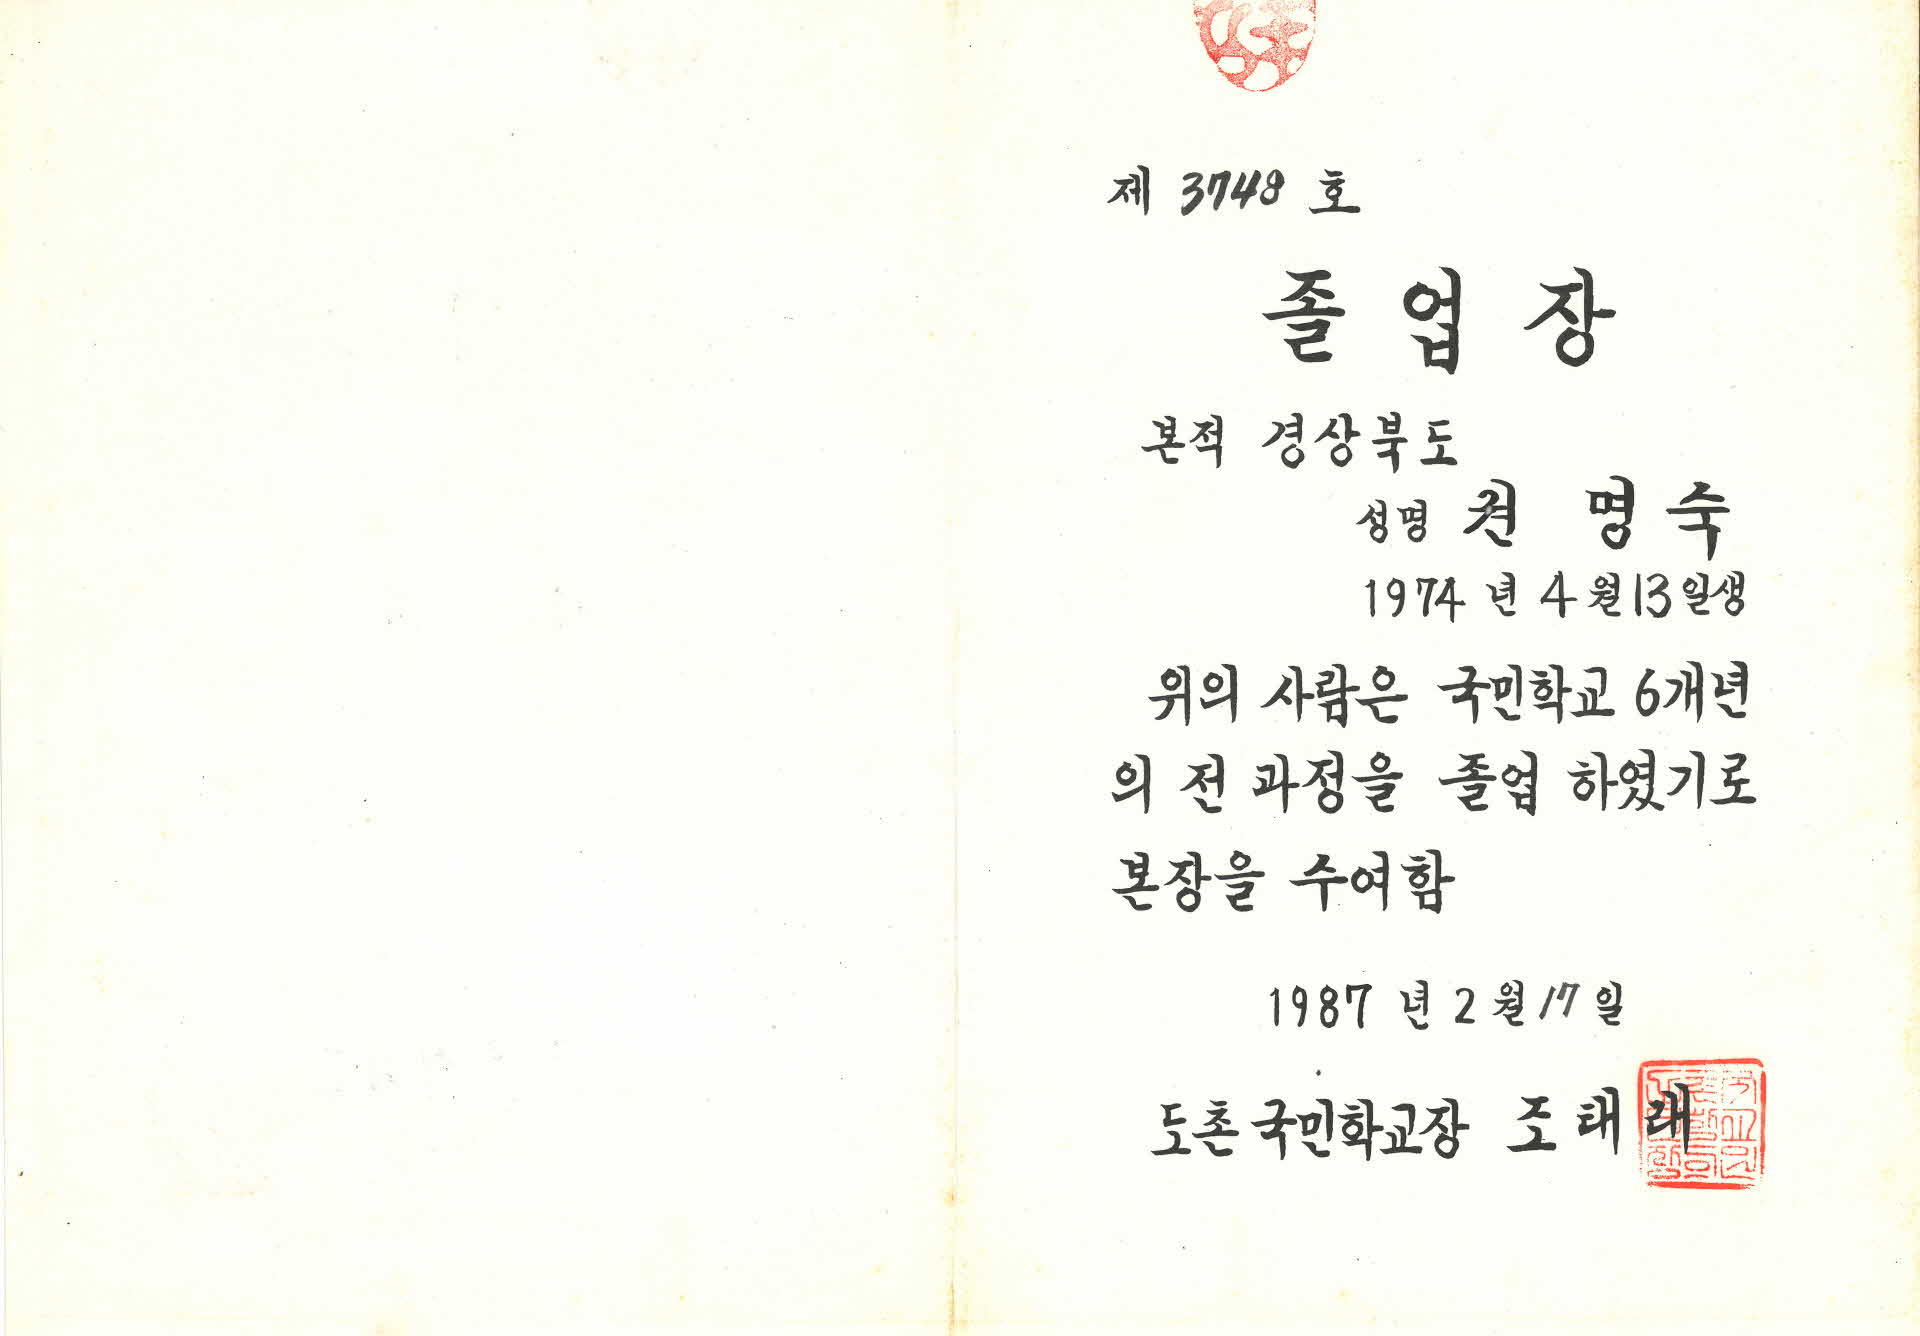 제 3748 호
졸 업 장
본적 경상북도
성명 권 명 숙
1974 년 4 월 13 일생
위의 사람은 국민학교 6개년
의 전 과정을 졸업 하였기로
본장을 수여함
1987 년 2 월 17 일
도촌국민학교장 조 태 래